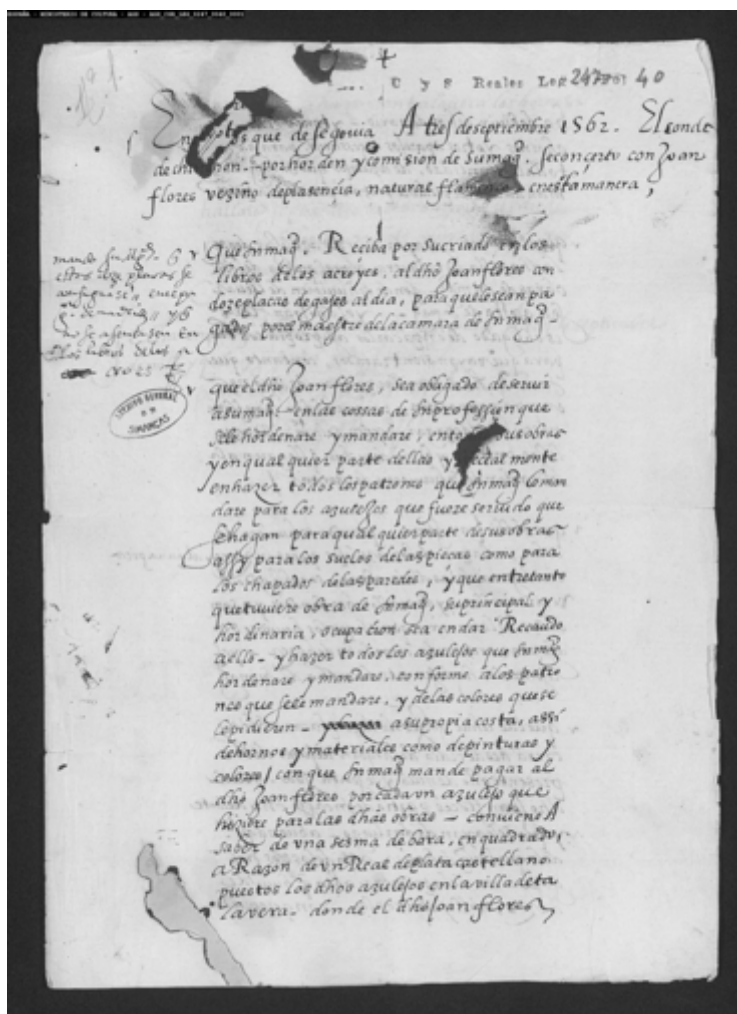 C y S Reales Leg 247 fol 40
En que de segovia A tres de septiembre 1562. El conde
de chin on. por horden y comision de su magd. se conçerto con Joan
flores vezino de plasençia, natural flamenco enesta manera,
Que su magd. Reciba por su criado en los
libros de los acroyes. al dho Joan flores con
doze placas de gajes al dia, para que le sean pa
gados por el maestre de la camara de su magd.
que el dho Joan flores, sea obligado de servir
a su magd. en las cossas de su profession que
se le hordenare y mandare, en sus obras
y en qual quier parte dellas y mente
en hazer todos los patrones que su magd. le man
dare para los azulejos que fuere servido que
se hagan para qual quier parte de sus obras
assy para los suelos de las pieças como para
los chapados de las paredes, y que entretanto
que tuviere obra de su magd, su principal y
hordinaria, ocupacion sea en dar Recaudo
a ello. y hazer todos los azulejos que su magd
hordenare y mandare. conforme a los patro
nes que se le mandare. y de las colores que se
le pidieren. a su propia costa, assi
de hornos y materiales como de pinturas y
colores / con que su magd mande pagar al
dho Joan flores por cada un azulejo que
hiziere para las dhas obras – conviene A
saber de una sesma de bara, en quadrado,
a Razon de un Real de plata castellano
puestos los dhos azulejos en la villa de ta
lavera. donde el dho Joan flores
mando su magd.
estas doze placas se
y se asentasen en
los libros de los a
croyes
ARCHIVO GENERAL
DE
SIMANCAS